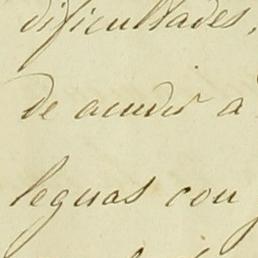 dificultades,
de acudir a
leguas con